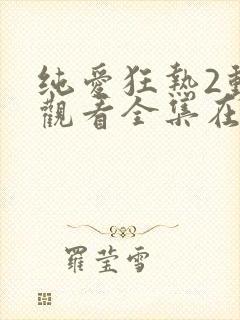 纯愛狂熱2
觀看全集在
羅莹雪